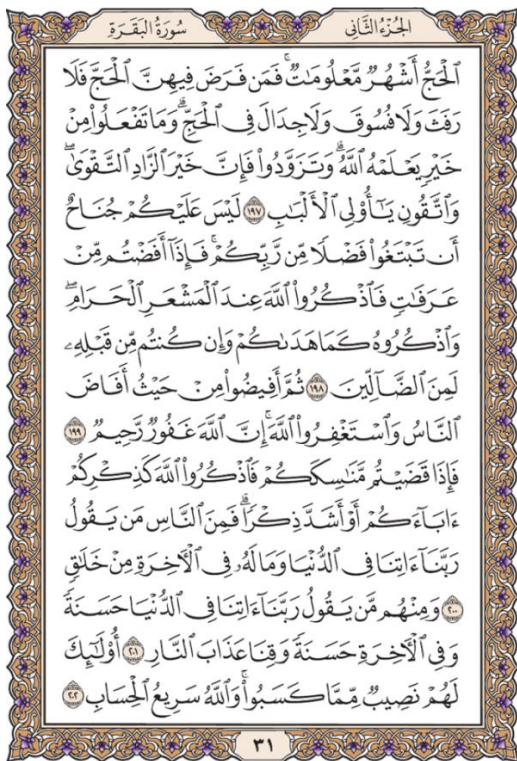 الجُزْءُ الثَّانِي
سُورَةُ البَقَرَةِ
ٱلْحَجُّ أَشْهُرٌ مَّعْلُومَٰتٌ ۚ فَمَن فَرَضَ فِيهِنَّ ٱلْحَجَّ فَلَا
رَفَثَ وَلَا فُسُوقَ وَلَا جِدَالَ فِى ٱلْحَجِّ ۗ وَمَا تَفْعَلُوا۟ مِنْ
خَيْرٍ يَعْلَمْهُ ٱللَّهُ ۗ وَتَزَوَّدُوا۟ فَإِنَّ خَيْرَ ٱلزَّادِ ٱلتَّقْوَىٰ ۖ
وَٱتَّقُونِ يَٰٓأُو۟لِى ٱلْأَلْبَٰبِ ١٩٧ لَيْسَ عَلَيْكُمْ جُنَاحٌ
أَن تَبْتَغُوا۟ فَضْلًا مِّن رَّبِّكُمْ ۚ فَإِذَآ أَفَضْتُم مِّنْ
عَرَفَٰتٍ فَٱذْكُرُوا۟ ٱللَّهَ عِندَ ٱلْمَشْعَرِ ٱلْحَرَامِ ۖ
وَٱذْكُرُوهُ كَمَا هَدَىٰكُمْ وَإِن كُنتُم مِّن قَبْلِهِۦ
لَمِنَ ٱلضَّآلِّينَ ١٩٨ ثُمَّ أَفِيضُوا۟ مِنْ حَيْثُ أَفَاضَ
ٱلنَّاسُ وَٱسْتَغْفِرُوا۟ ٱللَّهَ ۚ إِنَّ ٱللَّهَ غَفُورٌ رَّحِيمٌ ١٩٩
فَإِذَا قَضَيْتُم مَّنَٰسِكَكُمْ فَٱذْكُرُوا۟ ٱللَّهَ كَذِكْرِكُمْ
ءَابَآءَكُمْ أَوْ أَشَدَّ ذِكْرًا ۗ فَمِنَ ٱلنَّاسِ مَن يَقُولُ
رَبَّنَآ ءَاتِنَا فِى ٱلدُّنْيَا وَمَا لَهُۥ فِى ٱلْءَاخِرَةِ مِنْ خَلَٰقٍ
٢٠٠ وَمِنْهُم مَّن يَقُولُ رَبَّنَآ ءَاتِنَا فِى ٱلدُّنْيَا حَسَنَةً
وَفِى ٱلْءَاخِرَةِ حَسَنَةً وَقِنَا عَذَابَ ٱلنَّارِ ٢٠١ أُو۟لَٰٓئِكَ
لَهُمْ نَصِيبٌ مِّمَّا كَسَبُوا۟ ۚ وَٱللَّهُ سَرِيعُ ٱلْحِسَابِ ٢٠٢
٣١